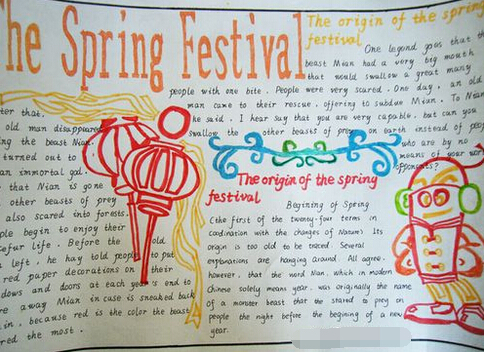 The Spring Festival
The origin of the spring
festival
One legend goes that th
beast Mian had a very big mouth
that would swallow a great many
people with one bite. People were very scared. One day, an old
man came to their rescue, offering to subdue Mian. To Nian
he said. I hear say that you are very capable, but can you
swallow the other beasts of prey on earth instead of peop
who are by no
means of your wor
opponents?
ter that,
old man disappeared
ing the beast Nian.
turned out to
an immortal god.
that Nian is gone
other beasts of prey
also scared into forests,
ple begin to enjoy their
ceful life. Before the old
left, he hay told people to put
red paper decorations on their
dows and doors at each year's end to
re away Mian in case is sneaked back
in, because red is the color the beast
red the most.
The origin of the spring
festival
Begining of Spring
(the first of the twenty-four terms in
coodination with the changes of Nature). Its
origin is too old to be traced. Several
explanations are hanging around. All agree,
however, that the word Nian, which in modern
Chinese solely means year, was originally the name
of a monster beast that the started to prey on
people the night before the begining of a new
year.